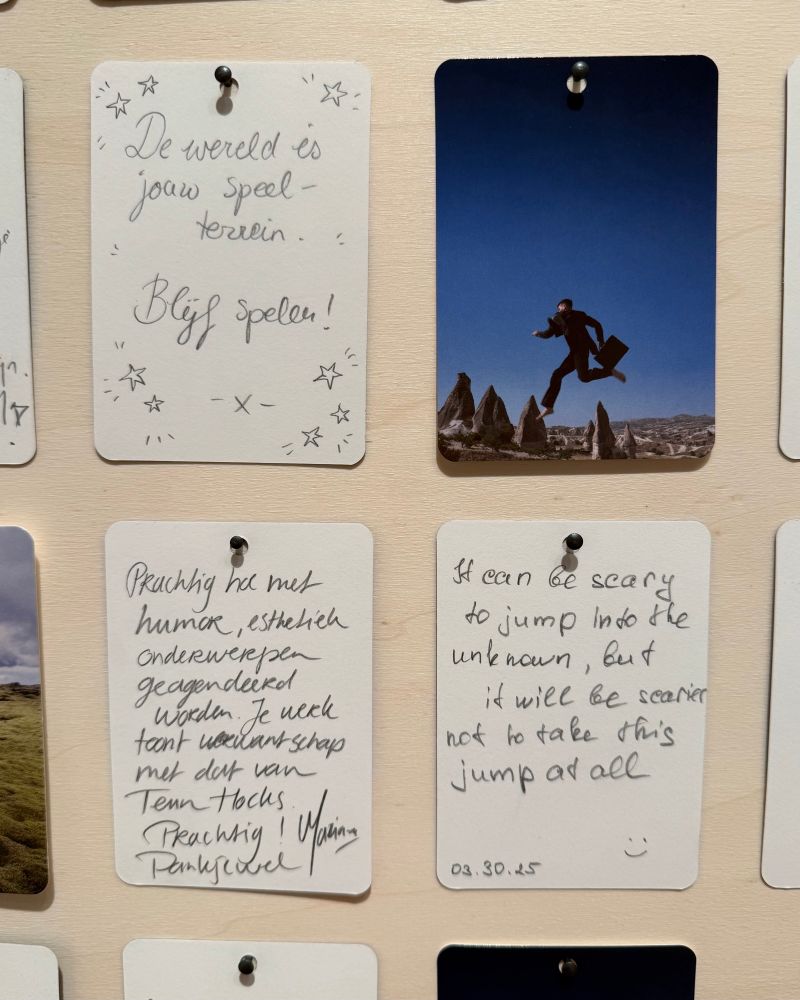 De wereld is
jouw speel-
terrein.
Blijf spelen!
-x-
Prachtig hoe met
humor, esthetiek
onderwerpen
geagendeerd
worden. Je werk
toont verwantschap
met dat van
Teun Hocks.
Prachtig!
Dankjewel
It can be scary
to jump into the
unknown, but
it will be scarier
not to take this
jump at all
03.30.25